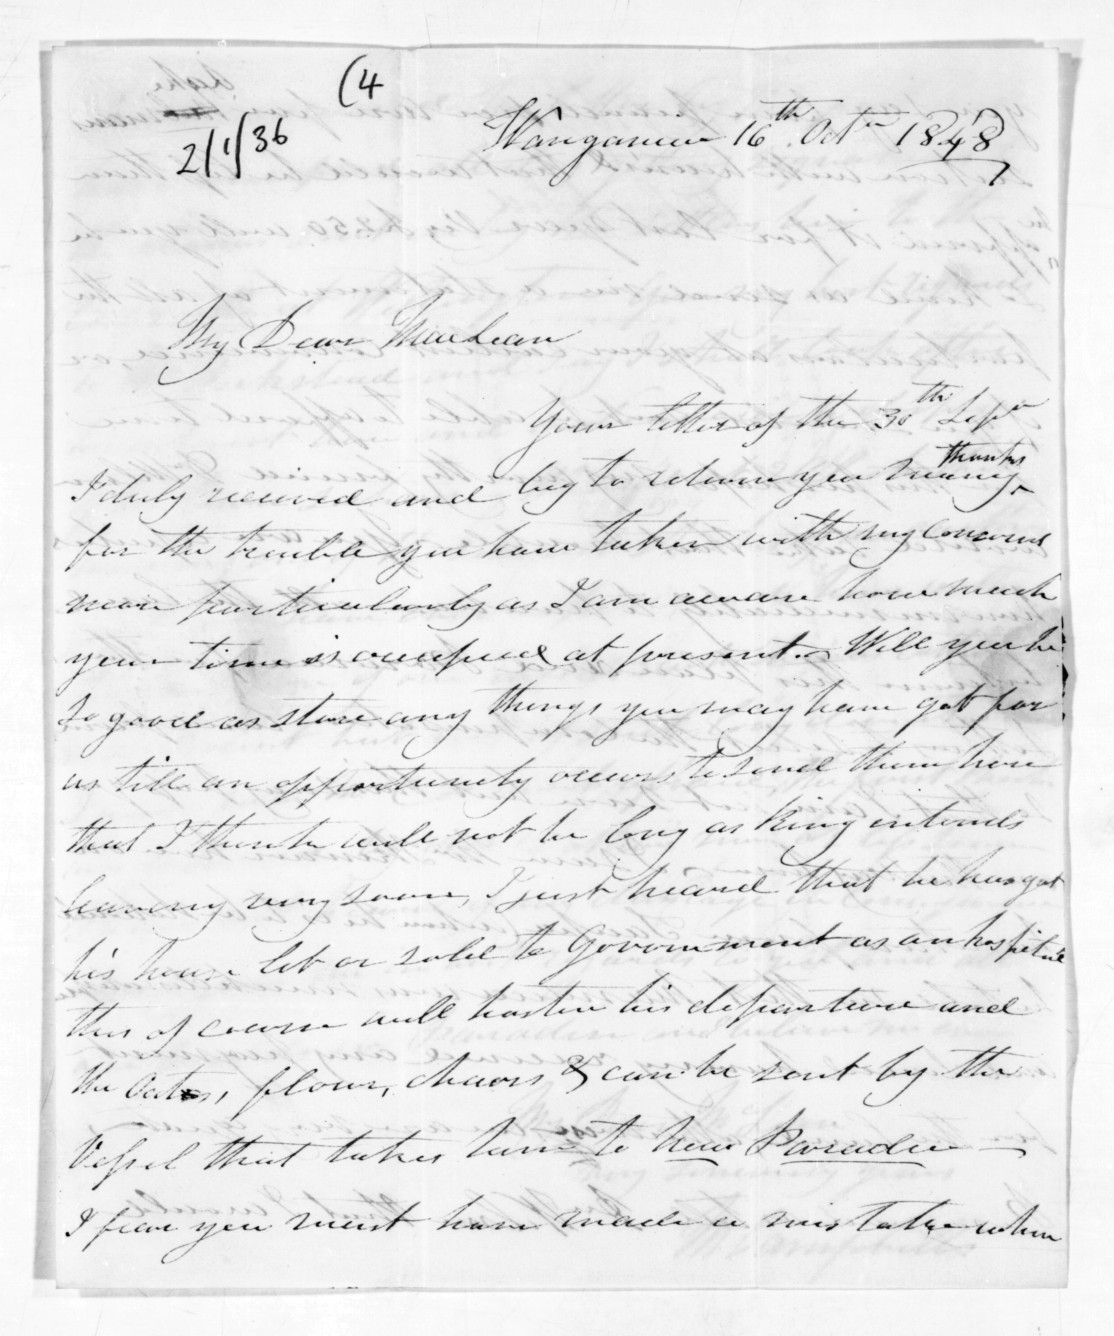 (4
2/1/36
Wanganui 16th Octr 1848
My Dear MacLean
Your letter of the 30th Sepr
I duly received and beg to return you many thanks
for the trouble you have taken with my concerns
more particularly as I am aware how much
your time is occupied at present. Will you be
so good as store any things you may have got for
us till an opportunity occurs to send them here
that I think will not be long as King intends
leaving very soon, I just heard that he has got
his house let or sold to Government as an hospital
this of course will hasten his departure and
the oats, flour, chairs & can be sent by the
Vessel that takes him to his Paradise
I fear you must have made a mistake when